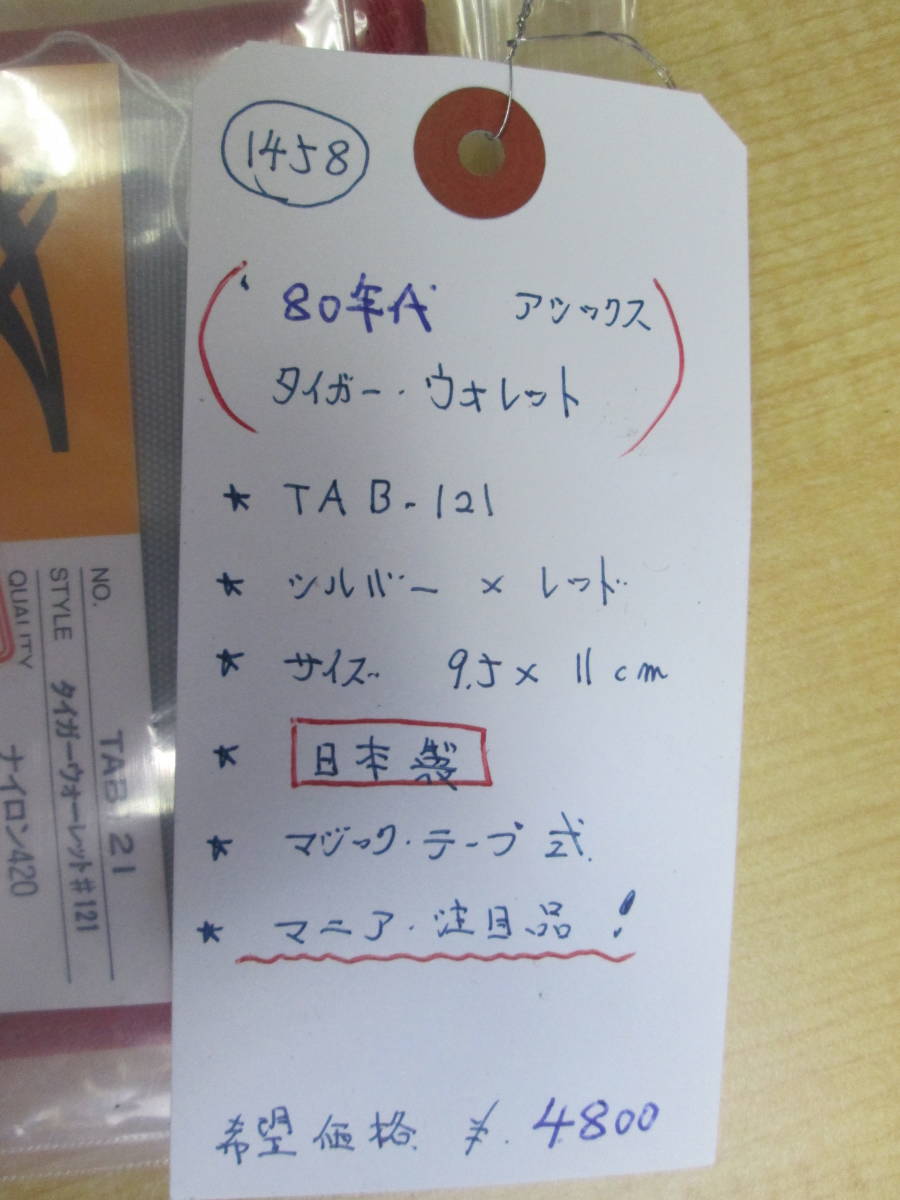 1458
'80年代 アシックス
タイガー・ウォレット
* TAB-121
* シルバー × レッド
* サイズ 9.5 × 11cm
* 日本製
* マジック・テープ式
* マニア・注目品!
希望価格 ¥.4800
NO. TAB 21
STYLE タイガーウォーレット#121
QUALITY ナイロン420